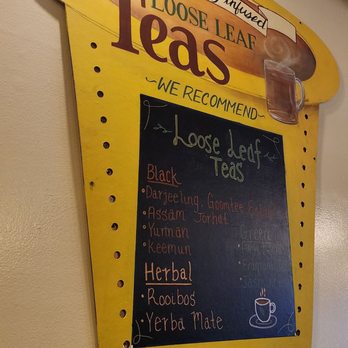 infused
LOOSE LEAF
Teas
~WE RECOMMEND~
Loose Leaf
Teas
Black
• Darjeeling, Goomtee
• Assam Jorhat
• Yunnan
• Keemun
Green
Herbal
• Rooibos
• Yerba Mate